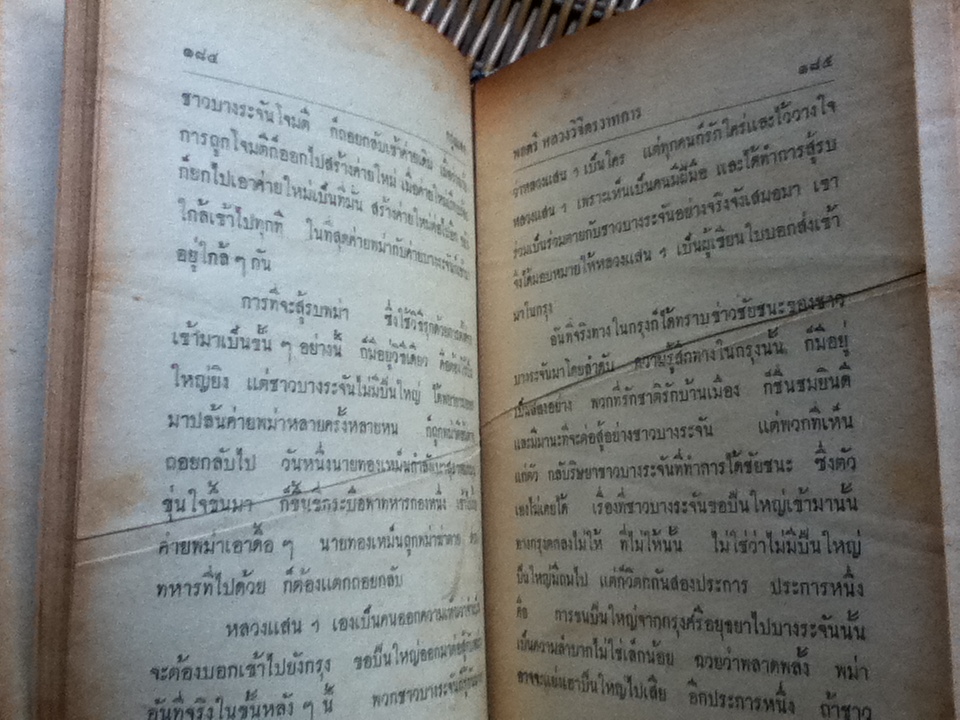 ๑๘๔
ชาวบางระจันโจมตี ก็ถอยกลับเข้าค่ายเดิม
การถูกโจมตีก็ออกไปสร้างค่ายใหม่ เมื่อค่ายใหม่
ก็ยกไปเอาค่ายใหม่เป็นที่มั่น สร้างค่ายใหม่ต่อไปอีก
ใกล้เข้าไปทุกที ในที่สุดค่ายพม่ากับค่ายบางระจันก็
อยู่ใกล้ ๆ กัน
การที่จะสู้รบพม่า ซึ่งใช้วิธีรุกด้วยการ
เข้ามาเป็นขั้น ๆ อย่างนี้ ก็มีอยู่วิธีเดียว คือต้อง
ใหญ่ยิง แต่ชาวบางระจันไม่มีปืนใหญ่ ได้พยายาม
มาปล้นค่ายพม่าหลายครั้งหลายหน ก็ถูกพม่า
ถอยกลับไป วันหนึ่งนายทองเหม็นกำลังเมาสุรา
ขุ่นใจขึ้นมา ก็ขึ้นขี่กระบือพาทหารกองหนึ่ง
ค่ายพม่าเอาดื้อ ๆ นายทองเหม็นถูกพม่าฆ่าตาย
ทหารที่ไปด้วย ก็ต้องแตกถอยกลับ
หลวงแสน ฯ เองเป็นคนออกความเห็นว่า
จะต้องบอกเข้าไปยังกรุง ขอปืนใหญ่ออกมาต่อสู้กับ
อันที่จริงในขั้นหลัง ๆ นี้ พวกชาวบางระจันก็รู้กัน
๑๘๕
พลตรี หลวงวิจิตรวาทการ
ว่าหลวงแสน ฯ เป็นใคร แต่ทุกคนก็รักใคร่และไว้วางใจ
หลวงแสน ฯ เพราะเห็นเป็นคนมีฝีมือ และได้ทำการสู้รบ
ร่วมเป็นร่วมตายกับชาวบางระจันอย่างจริงจังเสมอมา เขา
จึงได้มอบหมายให้หลวงแสน ฯ เป็นผู้เขียนใบบอกส่งเข้า
มาในกรุง
อันที่จริงทางในกรุงก็ได้ทราบข่าวชัยชนะของชาว
บางระจันมาโดยลำดับ ความรู้สึกทางในกรุงนั้น ก็มีอยู่
เป็นสองอย่าง พวกที่รักชาติรักบ้านเมือง ก็ชื่นชมยินดี
และมีมานะที่จะต่อสู้อย่างชาวบางระจัน แต่พวกที่เห็น
แก่ตัว กลับริษยาชาวบางระจันที่ทำการได้ชัยชนะ ซึ่งตัว
เองไม่เคยได้ เรื่องที่ชาวบางระจันขอปืนใหญ่เข้ามานั้น
ทางกรุงตกลงไม่ให้ ที่ไม่ให้นั้น ไม่ใช่ว่าไม่มีปืนใหญ่
ปืนใหญ่มีถมไป แต่ก็วิตกกันสองประการ ประการหนึ่ง
คือ การขนปืนใหญ่จากกรุงศรีอยุธยาไปบางระจันนั้น
เป็นความลำบากไม่ใช่เล็กน้อย ฉวยว่าพลาดพลั้ง พม่า
อาจจะแย่งเอาปืนใหญ่ไปเสีย อีกประการหนึ่ง ถ้าชาว